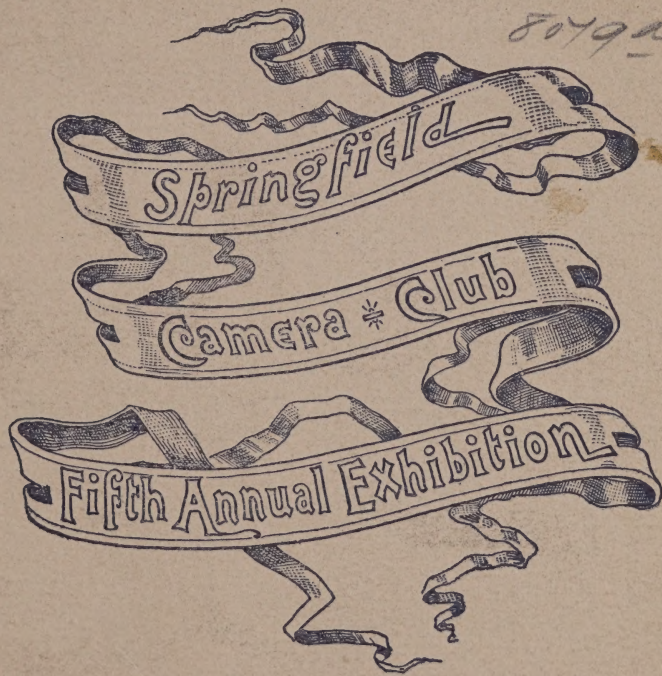 Springfield
Camera Club
Fifth Annual Exhibition